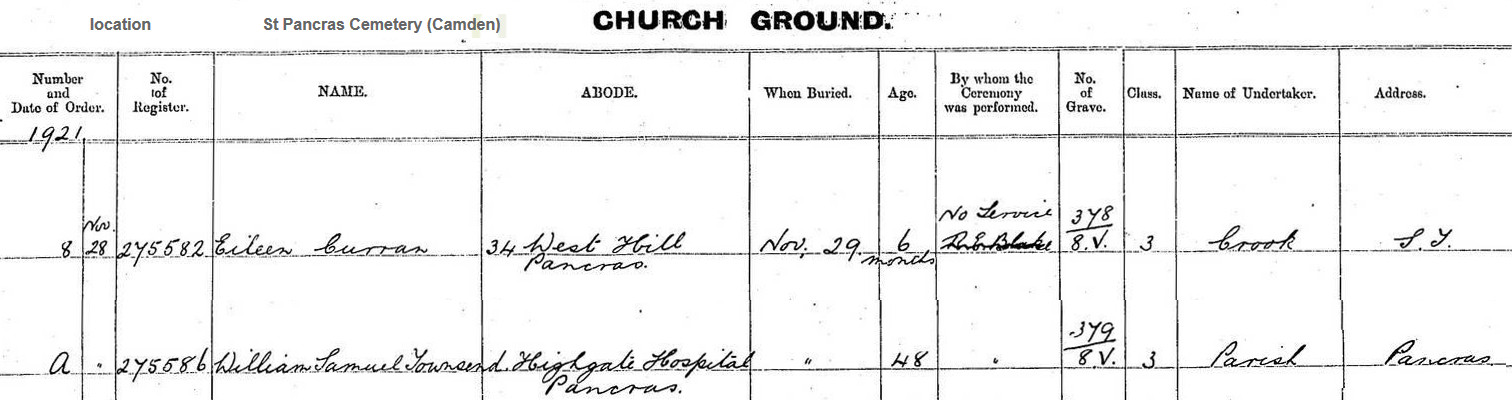 location St Pancras Cemetery (Camden)
CHURCH GROUND.
Number and Date of Order. No. of Register. NAME. ABODE. When Buried. Age. By whom the Ceremony was performed. No. of Grave. Class. Name of Undertaker. Address.
1921
Nov. No Service 378
8 28 275582 Eileen Curran 34 West Hill Nov. 29 6 8.V. 3 Crook
Pancras. months
379
A " 275586 William Samuel Townsend. Highgate Hospital " 48 " 8.V. 3 Parish Pancras
Pancras.